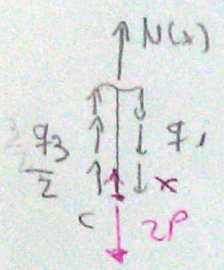 N(x)
q₃/2 q₁
x
c
2P